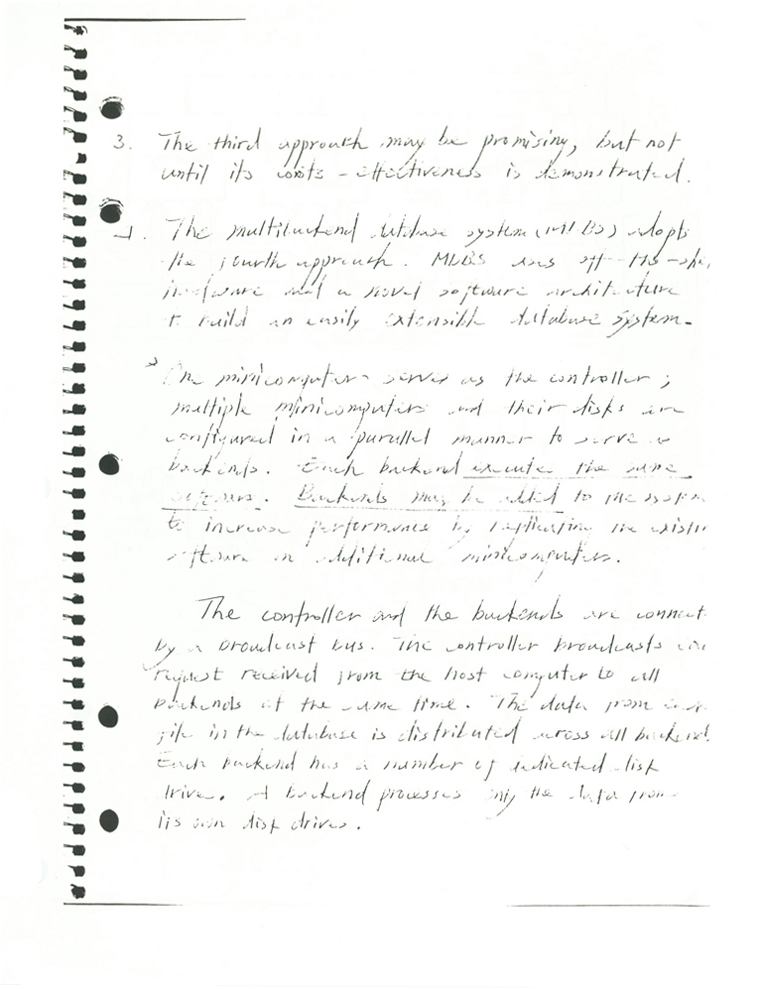 3. The third approach may be promising, but not
until its costs-effectiveness is demonstrated.
4. The multibackend database system (MDBS) adopts
the fourth approach. MDBS uses off-the-shel
hardware and a novel software architecture
to build an easily extensible database system.
One minicomputer serves as the controller;
multiple minicomputers and their disks are
configured in a parallel manner to serve as
backends. Each backend execute the same
software. Backends may be added to the system
to increase performance by replicating the existi
software on additional minicomputers.
The controller and the backends are connect
by a broadcast bus. The controller broadcasts
request received from the host computer to all
backends at the same time. The data from
file in the database is distributed across all backend.
Each backend has a number of dedicated disk
drive. A backend processes only the data from
its own disk drives.